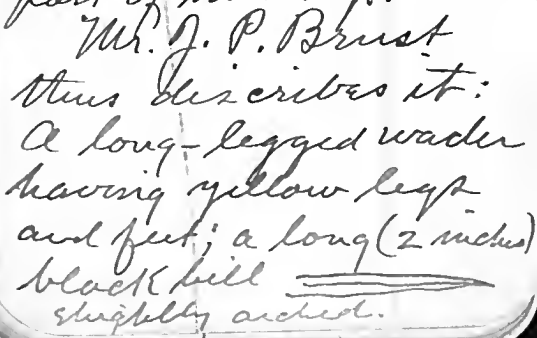 part of
Mr. J. P. Brust
thus describes it:
A long-legged wader
having yellow legs
and feet; a long (2 inches)
black bill
slightly arched.